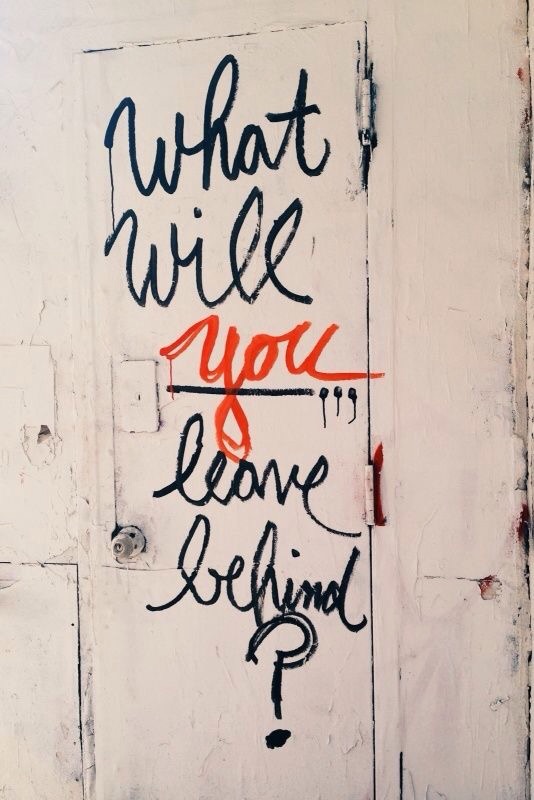 What
Will
you,,,
leave
behind
?